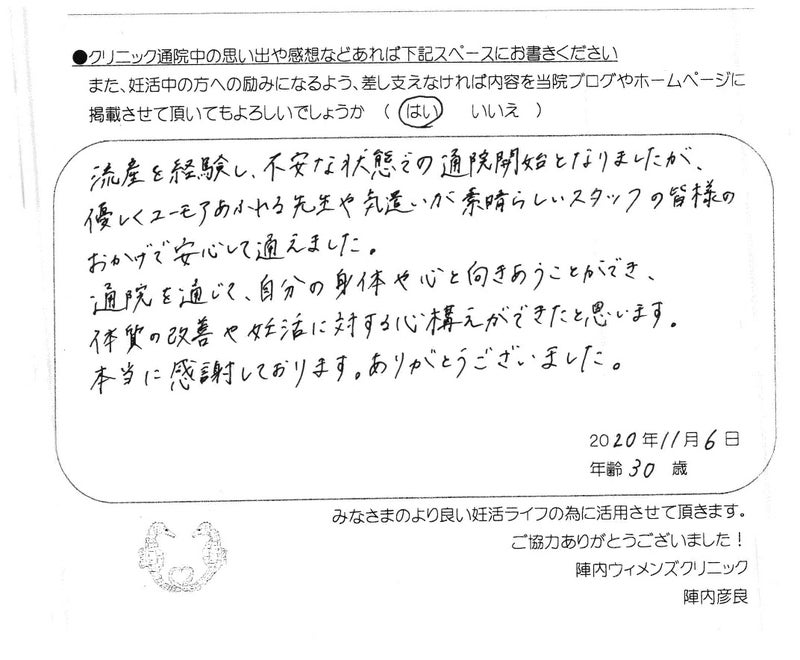 ●クリニック通院中の思い出や感想などあれば下記スペースにお書きください
また、妊活中の方への励みになるよう、差し支えなければ内容を当院ブログやホームページに
掲載させて頂いてもよろしいでしょうか （ はい　いいえ ）
流産を経験し、不安な状態での通院開始となりましたが、
優しくユーモアあふれる先生や気遣いが素晴らしいスタッフの皆様の
おかげで安心して通えました。
通院を通じて、自分の身体や心と向きあうことができ、
体質の改善や妊活に対する心構えができたと思います。
本当に感謝しております。ありがとうございました。
2020年11月6日
年齢 30 歳
みなさまのより良い妊活ライフの為に活用させて頂きます。
ご協力ありがとうございました！
陣内ウィメンズクリニック
陣内彦良